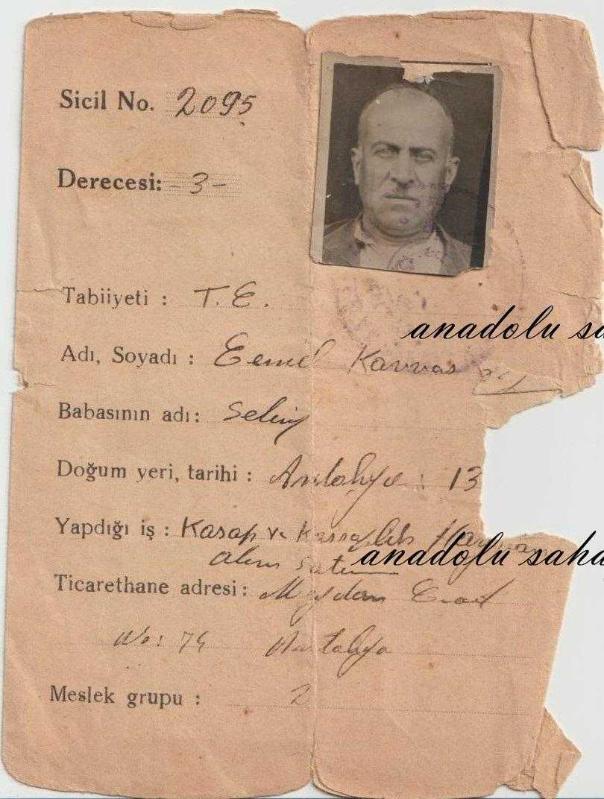 Sicil No. 2095
Derecesi: -3-
Tabiiyeti : T.E.
anadolu sa
Adı, Soyadı : Kavvas
Babasının adı: Selim
Doğum yeri, tarihi : Antalya : 13
Yapdığı iş : Kasap ve Kasaplık
anadolu saha
alım satım
Ticarethane adresi: Meydan
No: 74 Antalya
Meslek grupu : 2